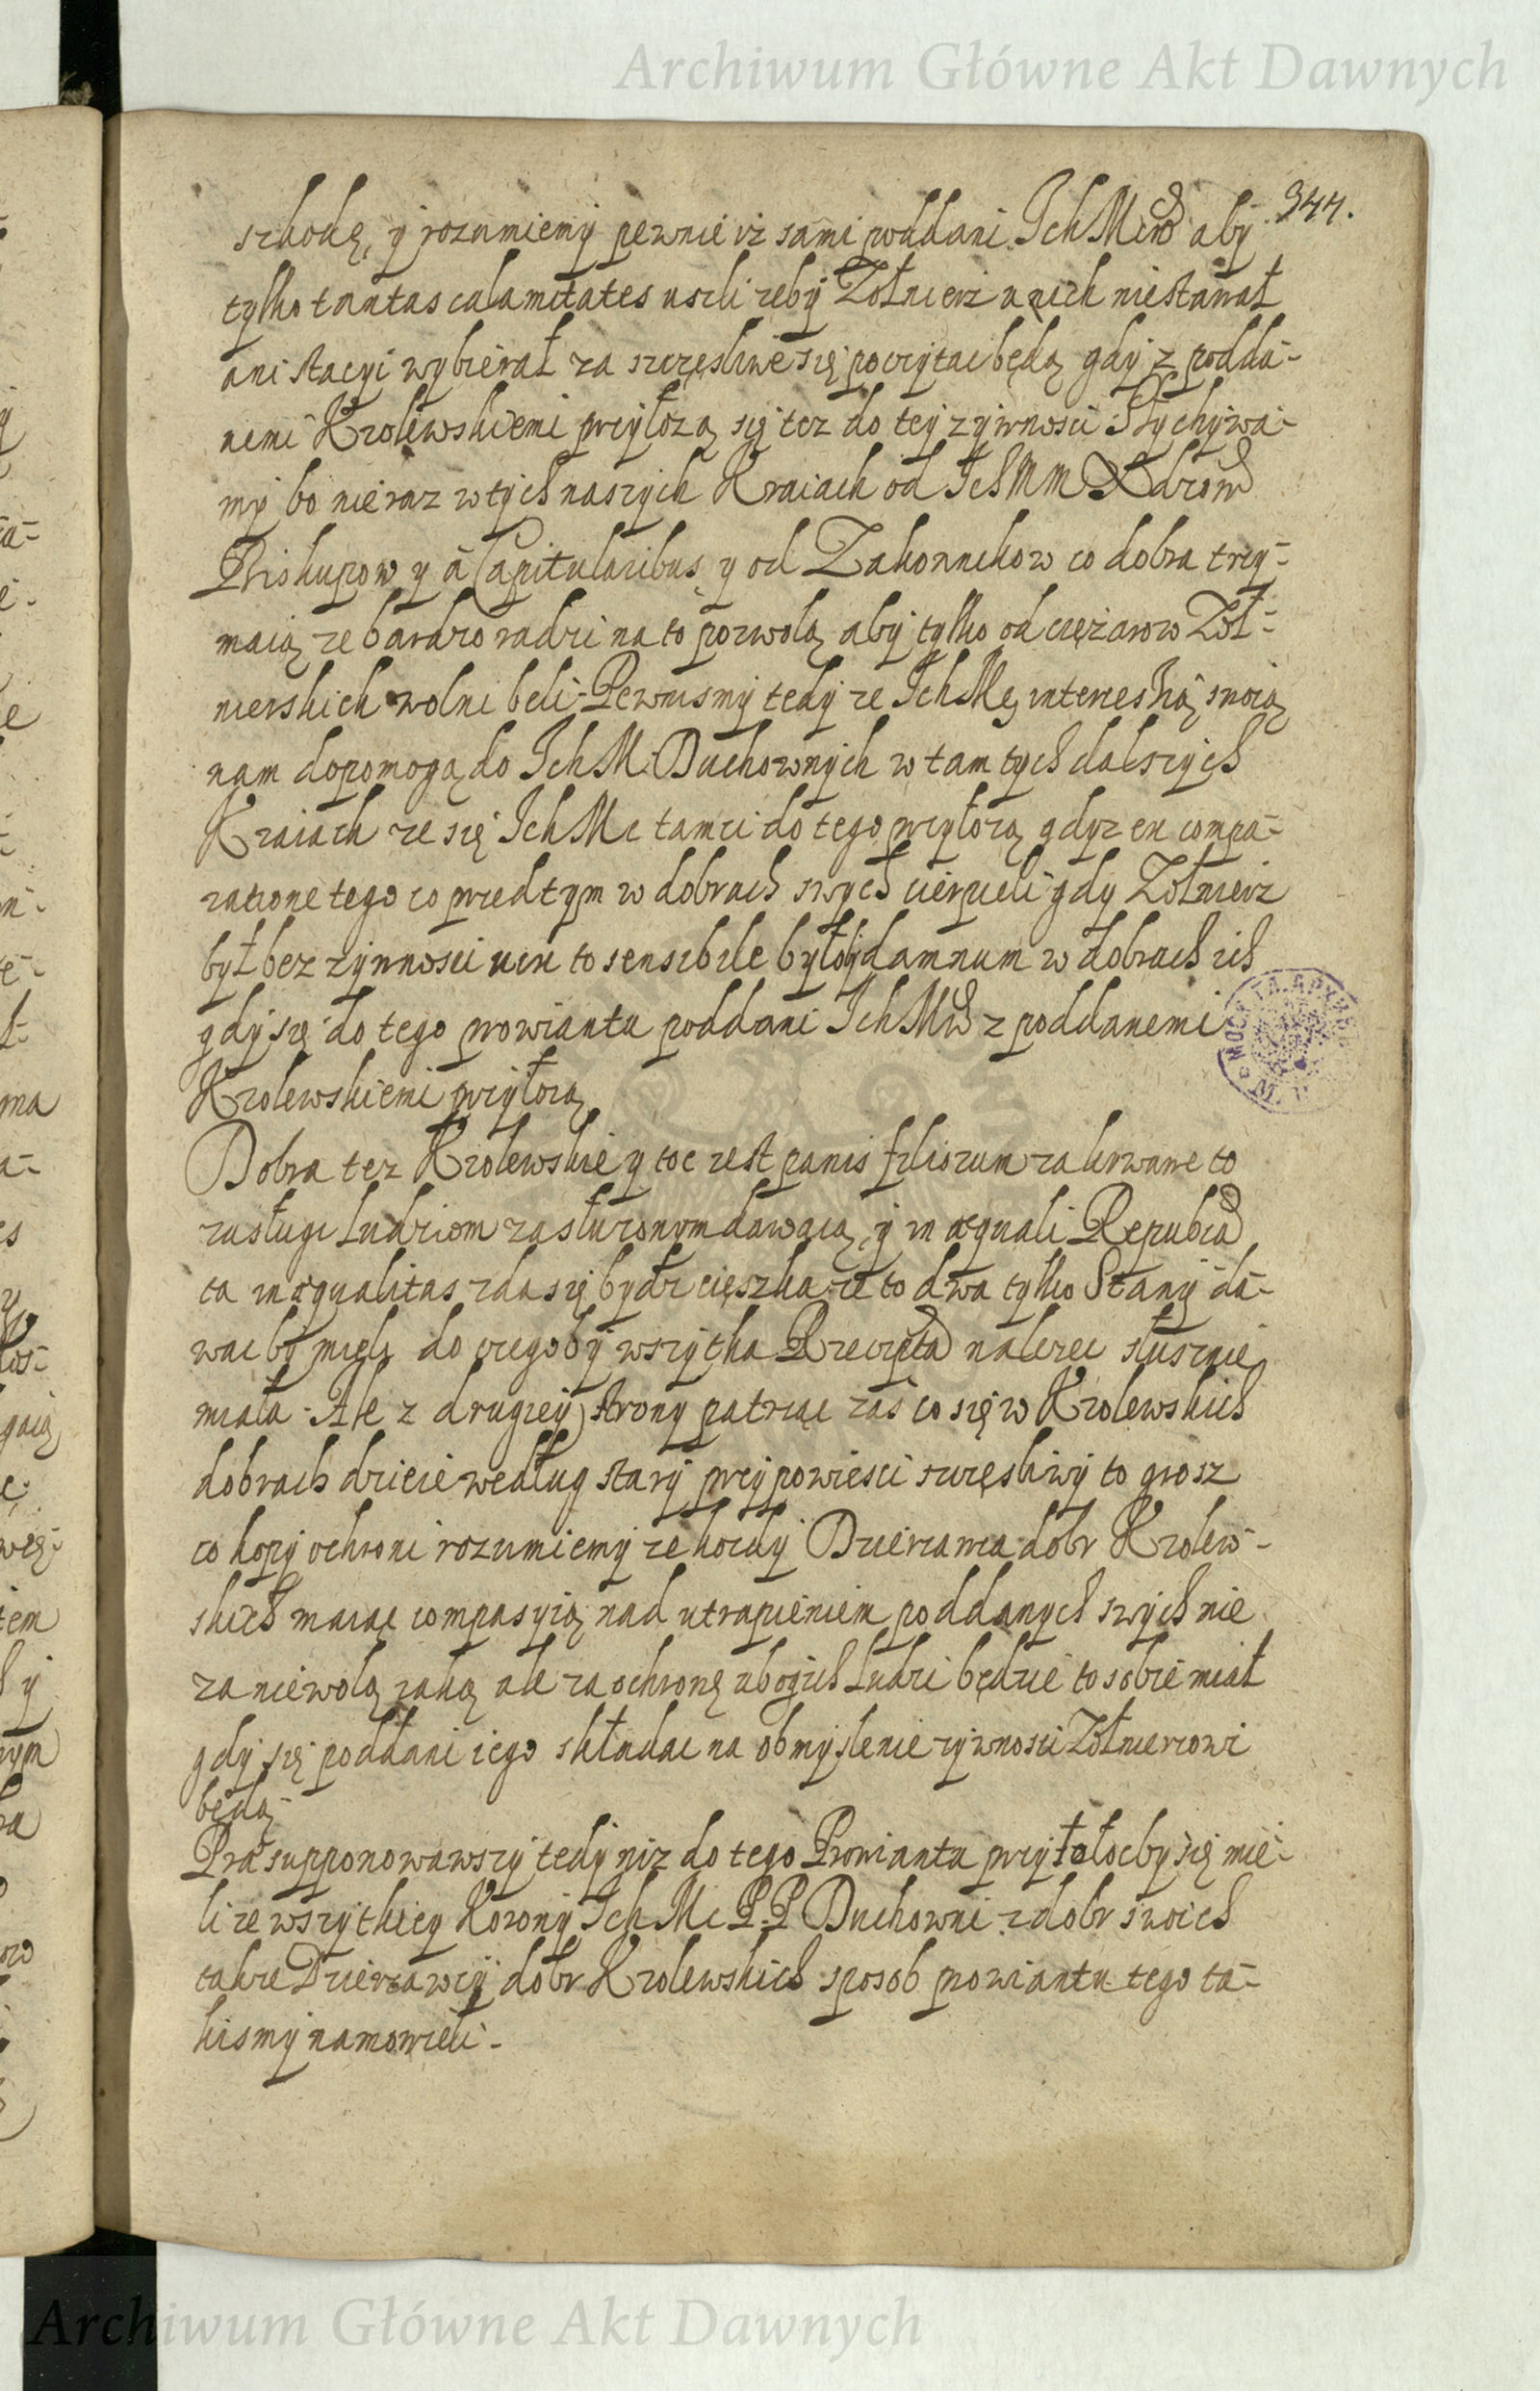 Archiwum Główne Akt Dawnych
344.
szkodę, y rozumiemy pewnie iż sami poddani Ich Mciow aby
tylko tantas calamitates uszli zeby Zołnierz u nich niestawał
ani stacyi wybierał za szczęsliwe się poczytac będą gdy z podda-
nemi Krolewskiemi przyłozą się tez do tey zywnosci Słychywa-
my bo nie raz w tych naszych Kraiach od Ich MM Xdzow
Biskupow y à Capitularibus y od Zakonnikow co dobra trzy-
maią ze bardzo radzi na to pozwolą aby tylko od ciężarow Zoł-
nierskich wolni beli. Pewnismy tedy ze Ich Mc intercessią swoią
nam dopomogą do Ich M. Duchownych w tamtych dalszych
Kraiach ze się Ich Mc tamci do tego przyłozą gdyz en compa-
ratione tego co przedtym w dobrach swych cierpieli gdy Zołnierz
był bez zywnosci to sensibile byłoby damnum w dobrach ich
gdy się do tego prowiantu poddani Ich Mciow z poddanemi
Krolewskiemi przyłozą
Dobra tez Krolewskie y toc iest panis filiorum za krwawe to
zusługi Ludziom zasłuzonym dawaią, y in æquali Republica
ta inæqualitas zda się bydz cięszka ze to dwa tylko Stany da-
wac by mieli do czegoby wszytka Rzeczpta nalezec słusznie
miała. Ale z drugiey strony patrząc zas co się w Krolewskich
dobrach dzieie według stary przypowiesci szczęsliwy to grosz
co kopy ochroni rozumiemy ze kozdy Dzierzawca dobr Krolew-
skich maiąc compasyią nad utrapieniem poddanych swych nie
za niewolą iaką ale za ochronę ubogich Ludzi będzie to sobie miał
gdy się poddani iego składac na obmyslenie zywnosci Zołnierzowi
będą
Præsupponowawszy tedy iz do tego Prowiantu przyłoloćby się mie-
li ze wszytkiey Korony Ich Mc P.P Duchowni z dobr swoich
takze Dzierzawcy dobr Krolewskich sposob prowiantu tego ta-
kismy namowieli.
Archiwum Główne Akt Dawnych